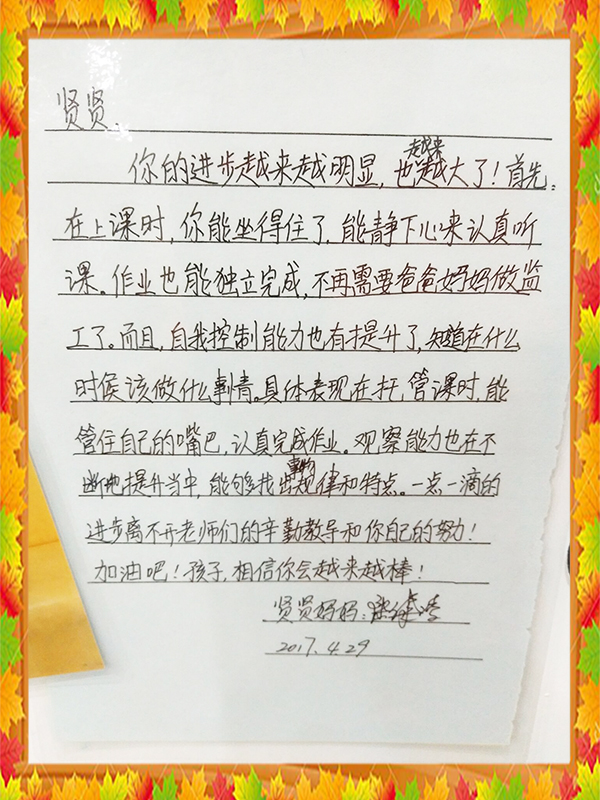 贤贤、
你的进步越来越明显,也越来越大了!首先,
在上课时,你能坐得住了,能静下心来认真听
课。作业也能独立完成,不再需要爸爸妈妈做监
工了。而且,自我控制能力也有提升了,知道在什么
时候该做什么事情。具体表现在托管课时,能
管住自己的嘴巴,认真完成作业。观察能力也在不
断地提升当中,能够找出事物规律和特点。一点一滴的
进步离不开老师们的辛勤教导和你自己的努力!
加油吧!孩子,相信你会越来越棒!
贤贤妈妈:
2017.4.29